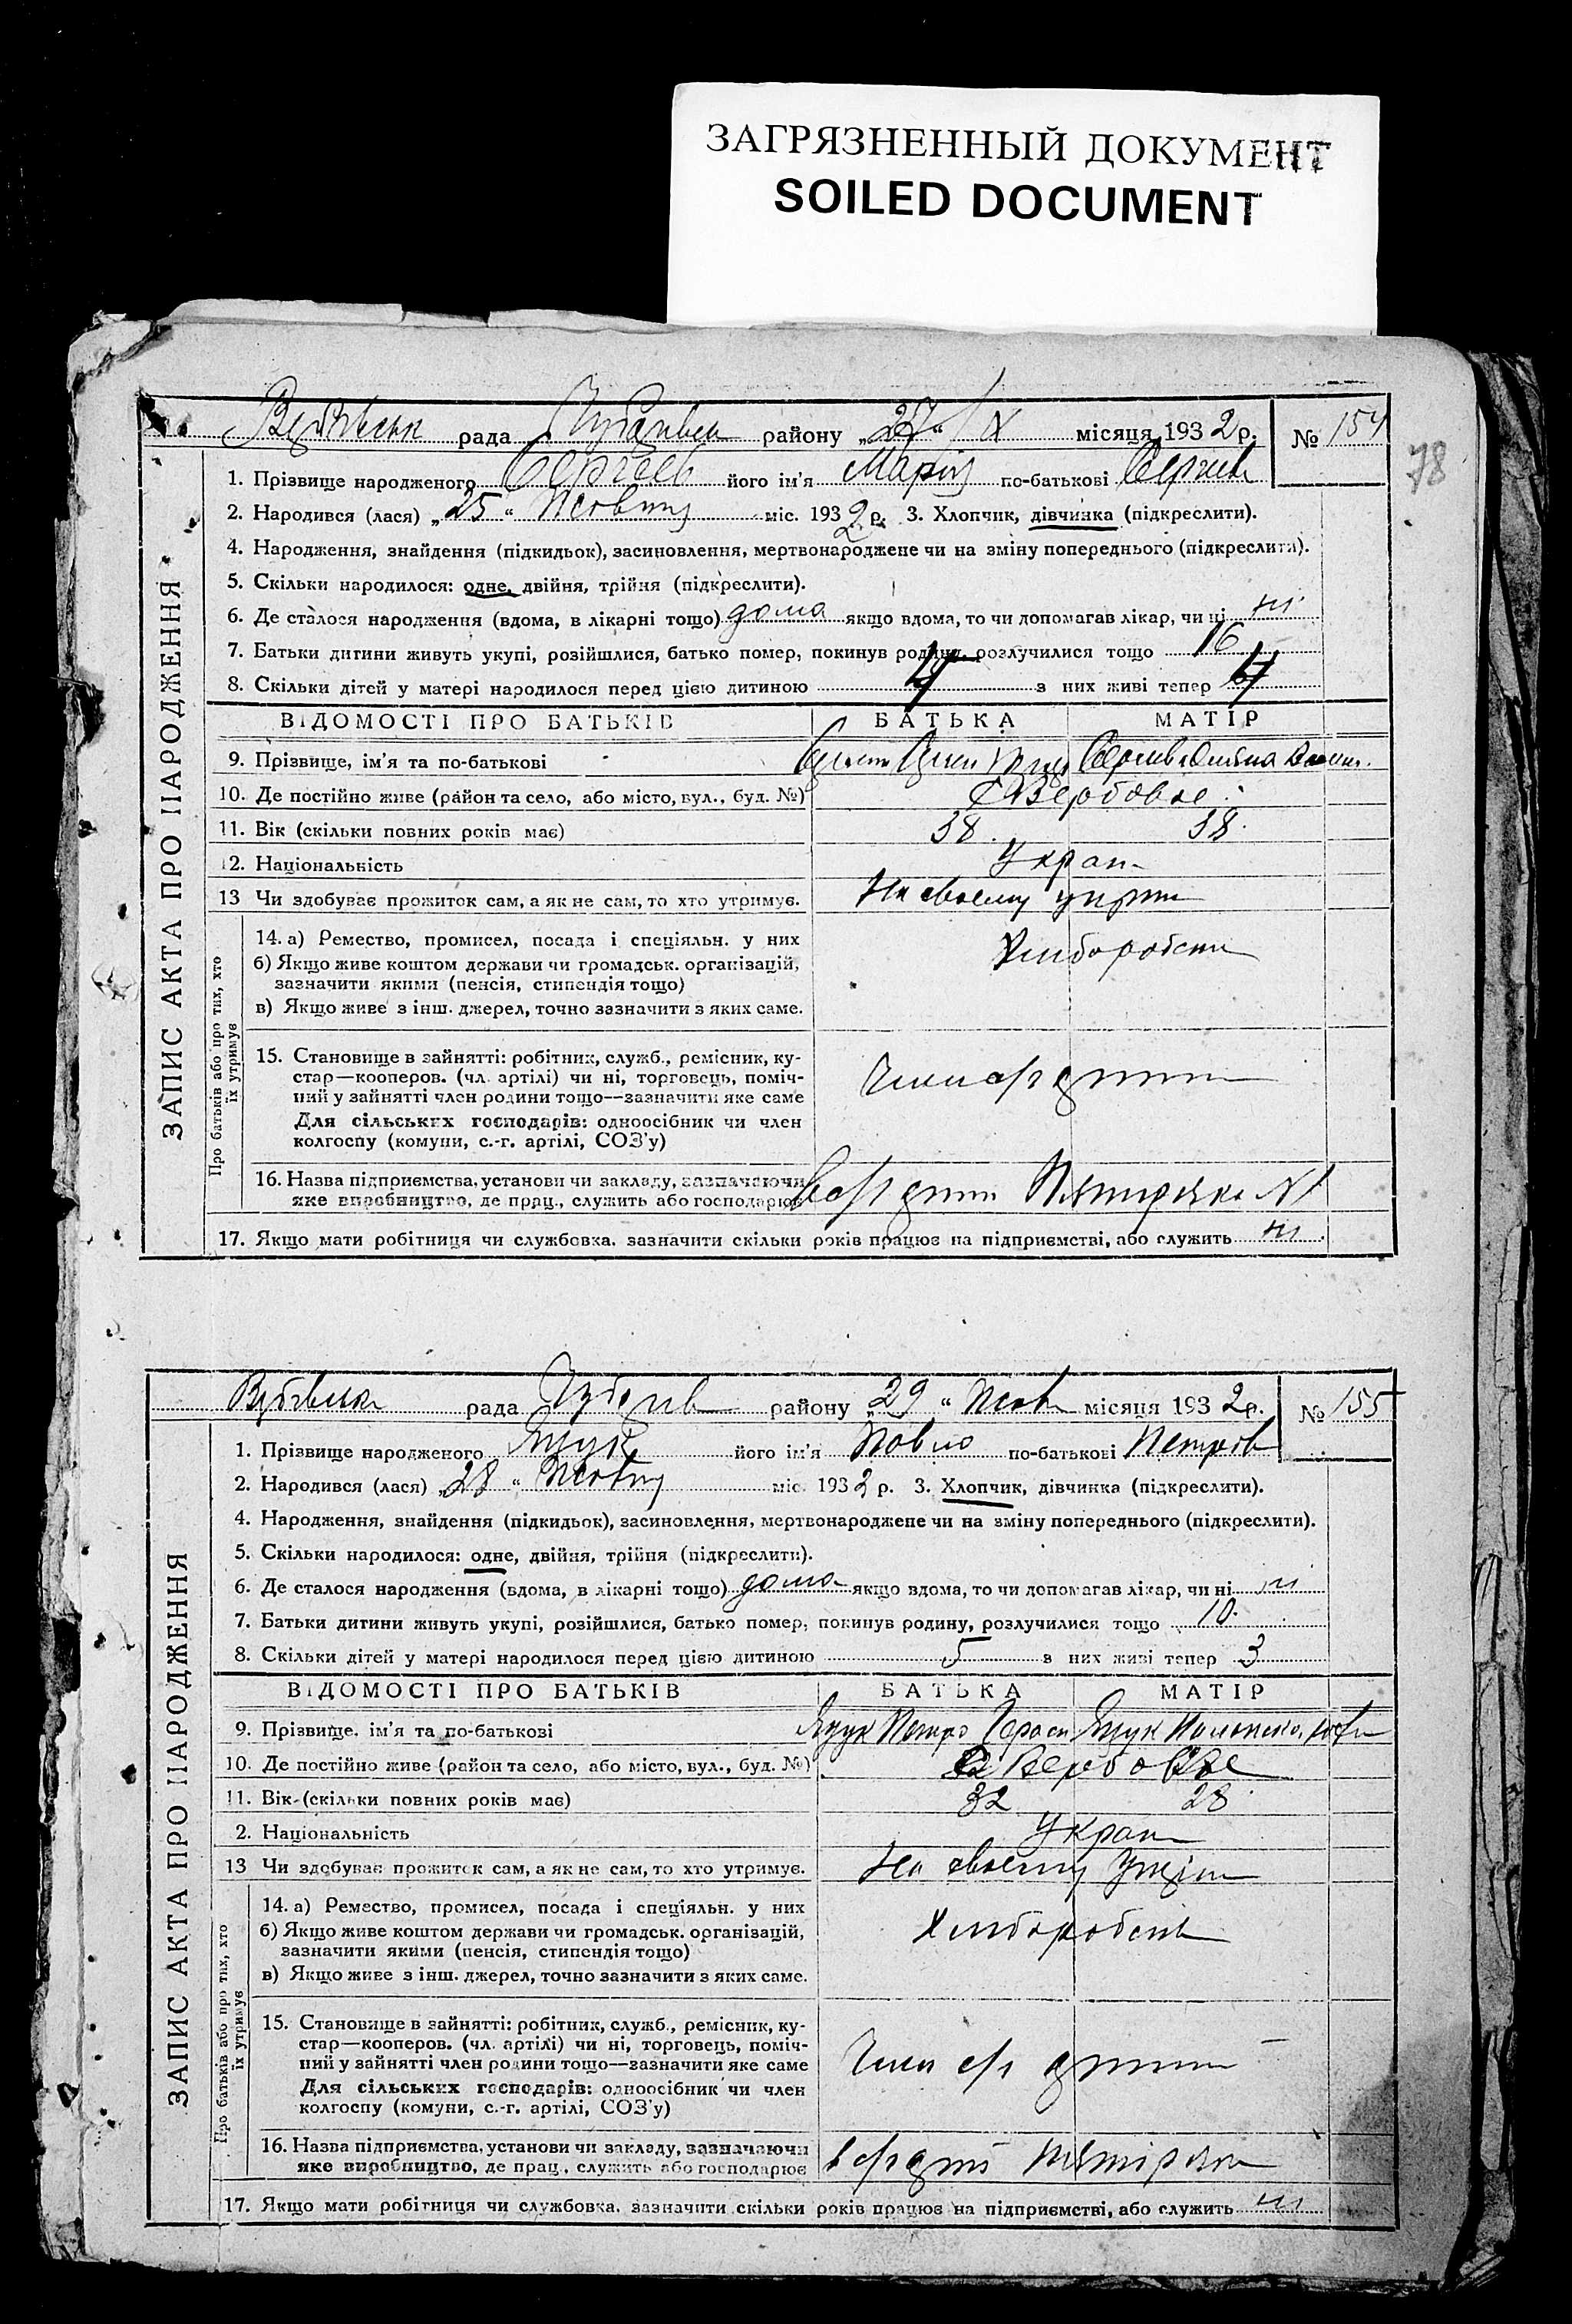 ЗАГРЯЗНЕННЫЙ ДОКУМЕНТ
SOILED DOCUMENT
78
рада району „27“ IX місяця 1932 р. № 154
ЗАПИС АКТА ПРО НАРОДЖЕННЯ
1. Прізвище народженого Сергєєв його ім'я Марія по-батькові
2. Народився (лася) „25“ Жовтня міс. 1932 р. 3. Хлопчик, дівчинка (підкреслити).
4. Народження, знайдення (підкидьок), засиновлення, мертвонароджене чи на зміну попереднього (підкреслити).
5. Скільки народилося: одне, двійня, трійня (підкреслити).
6. Де сталося народження (вдома, в лікарні тощо) дома якщо вдома, то чи допомагав лікар, чи ні ні
7. Батьки дитини живуть укупі, розійшлися, батько помер, покинув родину, розлучилися тощо 16
8. Скільки дітей у матері народилося перед цією дитиною 4 з них живі тепер 4
ВІДОМОСТІ ПРО БАТЬКІВ БАТЬКА МАТІР
9. Прізвище, ім'я та по-батькові
10. Де постійно живе (район та село, або місто, вул., буд. №) с Вербовце
11. Вік (скільки повних років має) 38 38
12. Національність Украп
13 Чи здобуває прожиток сам, а як не сам, то хто утримує. На своему
Про батьків або про тих, хто їх утримує
14. а) Ремество, промисел, посада і спеціяльн. у них
б) Якщо живе коштом держави чи громадськ. організацій,
зазначити якими (пенсія, стипендія тощо)
в) Якщо живе з інш. джерел, точно зазначити з яких саме.
Хлібороби
15. Становище в зайнятті: робітник, служб., ремісник, ку-
стар—кооперов. (чл. артілі) чи ні, торговець, поміч-
ний у зайнятті член родини тощо—зазначити яке саме
Для сільських господарів: одноосібник чи член
колгоспу (комуни, с.-г. артілі, СОЗ'у)
16. Назва підприємства, установи чи закладу, зазначаючи
яке виробництво, де прац., служить або господарює
17. Якщо мати робітниця чи службовка, зазначити скільки років працює на підприємстві, або служить ні
рада району „29“ Жовт місяця 1932 р. № 155
ЗАПИС АКТА ПРО НАРОДЖЕННЯ
1. Прізвище народженого Ящук його ім'я Повло по-батькові Петров
2. Народився (лася) „28“ Жовтня міс. 1932 р. 3. Хлопчик, дівчинка (підкреслити).
4. Народження, знайдення (підкидьок), засиновлення, мертвонароджене чи на зміну попереднього (підкреслити).
5. Скільки народилося: одне, двійня, трійня (підкреслити).
6. Де сталося народження (вдома, в лікарні тощо) дома якщо вдома, то чи допомагав лікар, чи ні ні
7. Батьки дитини живуть укупі, розійшлися, батько помер, покинув родину, розлучилися тощо 10
8. Скільки дітей у матері народилося перед цією дитиною 5 з них живі тепер 3
ВІДОМОСТІ ПРО БАТЬКІВ БАТЬКА МАТІР
9. Прізвище, ім'я та по-батькові Ящук Петро Ящук
10. Де постійно живе (район та село, або місто, вул., буд. №) Вербовце
11. Вік (скільки повних років має) 32 28
2. Національність Украп
13 Чи здобуває прожиток сам, а як не сам, то хто утримує. На своему
Про батьків або про тих, хто їх утримує
14. а) Ремество, промисел, посада і спеціяльн. у них
б) Якщо живе коштом держави чи громадськ. організацій,
зазначити якими (пенсія, стипендія тощо)
в) Якщо живе з інш. джерел, точно зазначити з яких саме.
15. Становище в зайнятті: робітник, служб., ремісник, ку-
стар—кооперов. (чл. артілі) чи ні, торговець, поміч-
ний у зайнятті член родини тощо—зазначити яке саме
Для сільських господарів: одноосібник чи член
колгоспу (комуни, с.-г. артілі, СОЗ'у)
16. Назва підприємства, установи чи закладу, зазначаючи
яке виробництво, де прац., служить або господарює
17. Якщо мати робітниця чи службовка, зазначити скільки років працює на підприємстві, або служить ні